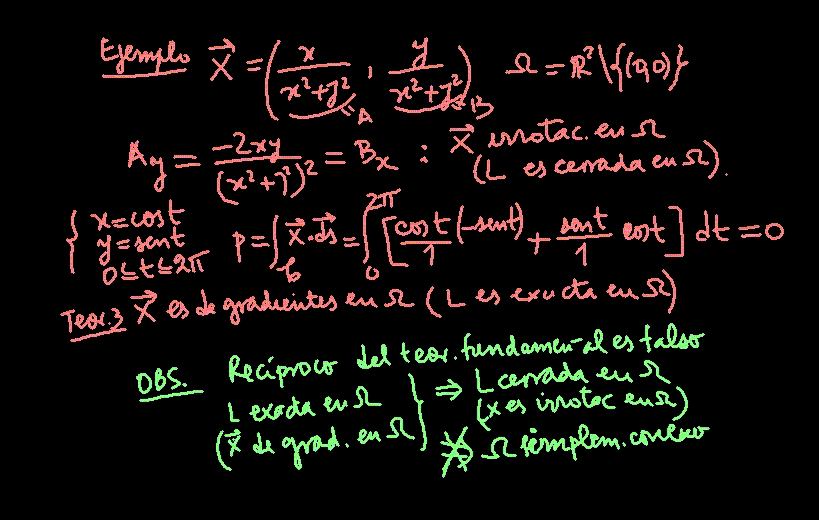 Ejemplo X⃗ = (x/(x²+y²), y/(x²+y²)) Ω = ℝ²\{(0,0)}
A B
A_y = -2xy/(x²+y²)² = B_x : X⃗ irrotac. en Ω
(L es cerrada en Ω).
{ x=cost
y=sent
0≤t≤2π
P = ∫_b X⃗·ds⃗ = ∫_0^{2π} [cost/1 (-sent) + sent/1 cost] dt = 0
Teor.3 X⃗ es de gradientes en Ω (L es exacta en Ω)
OBS. Recíproco del teor. fundamental es falso
L exacta en Ω
(X⃗ de grad. en Ω } ⇒ L cerrada en Ω
(x es irrotac en Ω)
⇏ Ω simplem. conexo